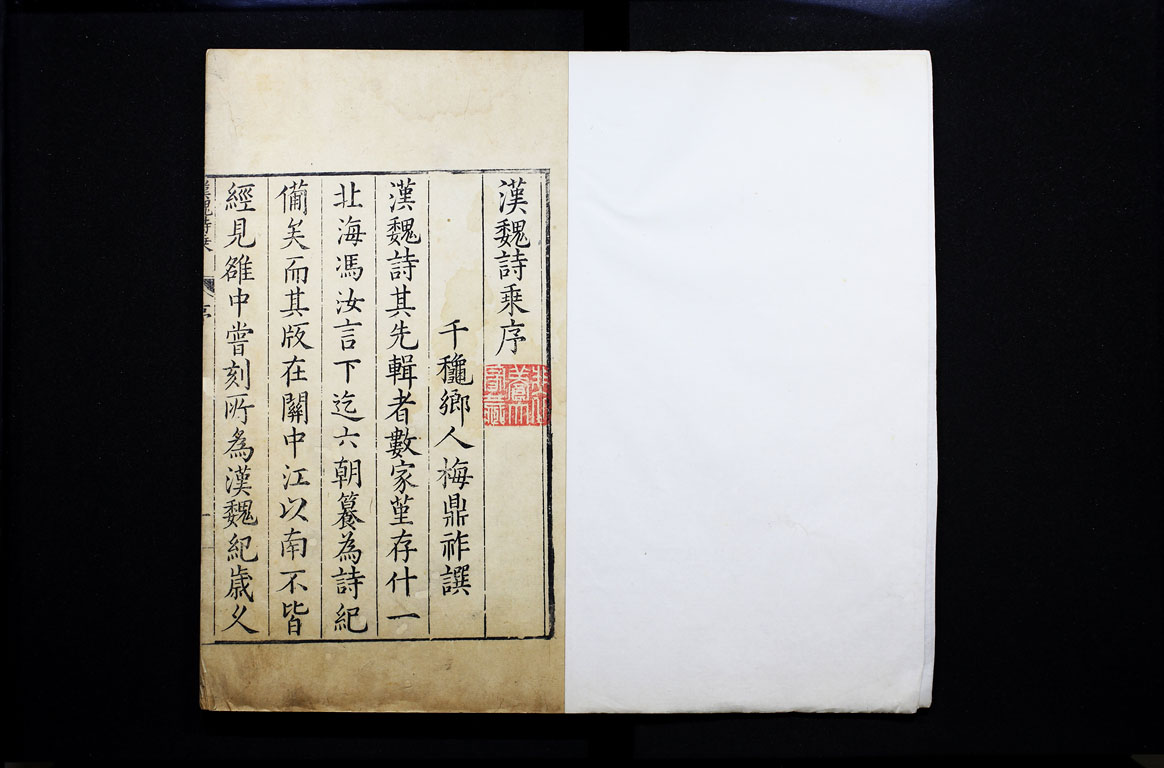 漢魏詩乘序
千龝鄉人梅鼎祚譔
漢魏詩其先輯者數家堇存什一
北海馮汝言下迄六朝纂為詩紀
僃矣而其版在關中江以南不皆
經見雒中嘗刻所為漢魏紀歲久